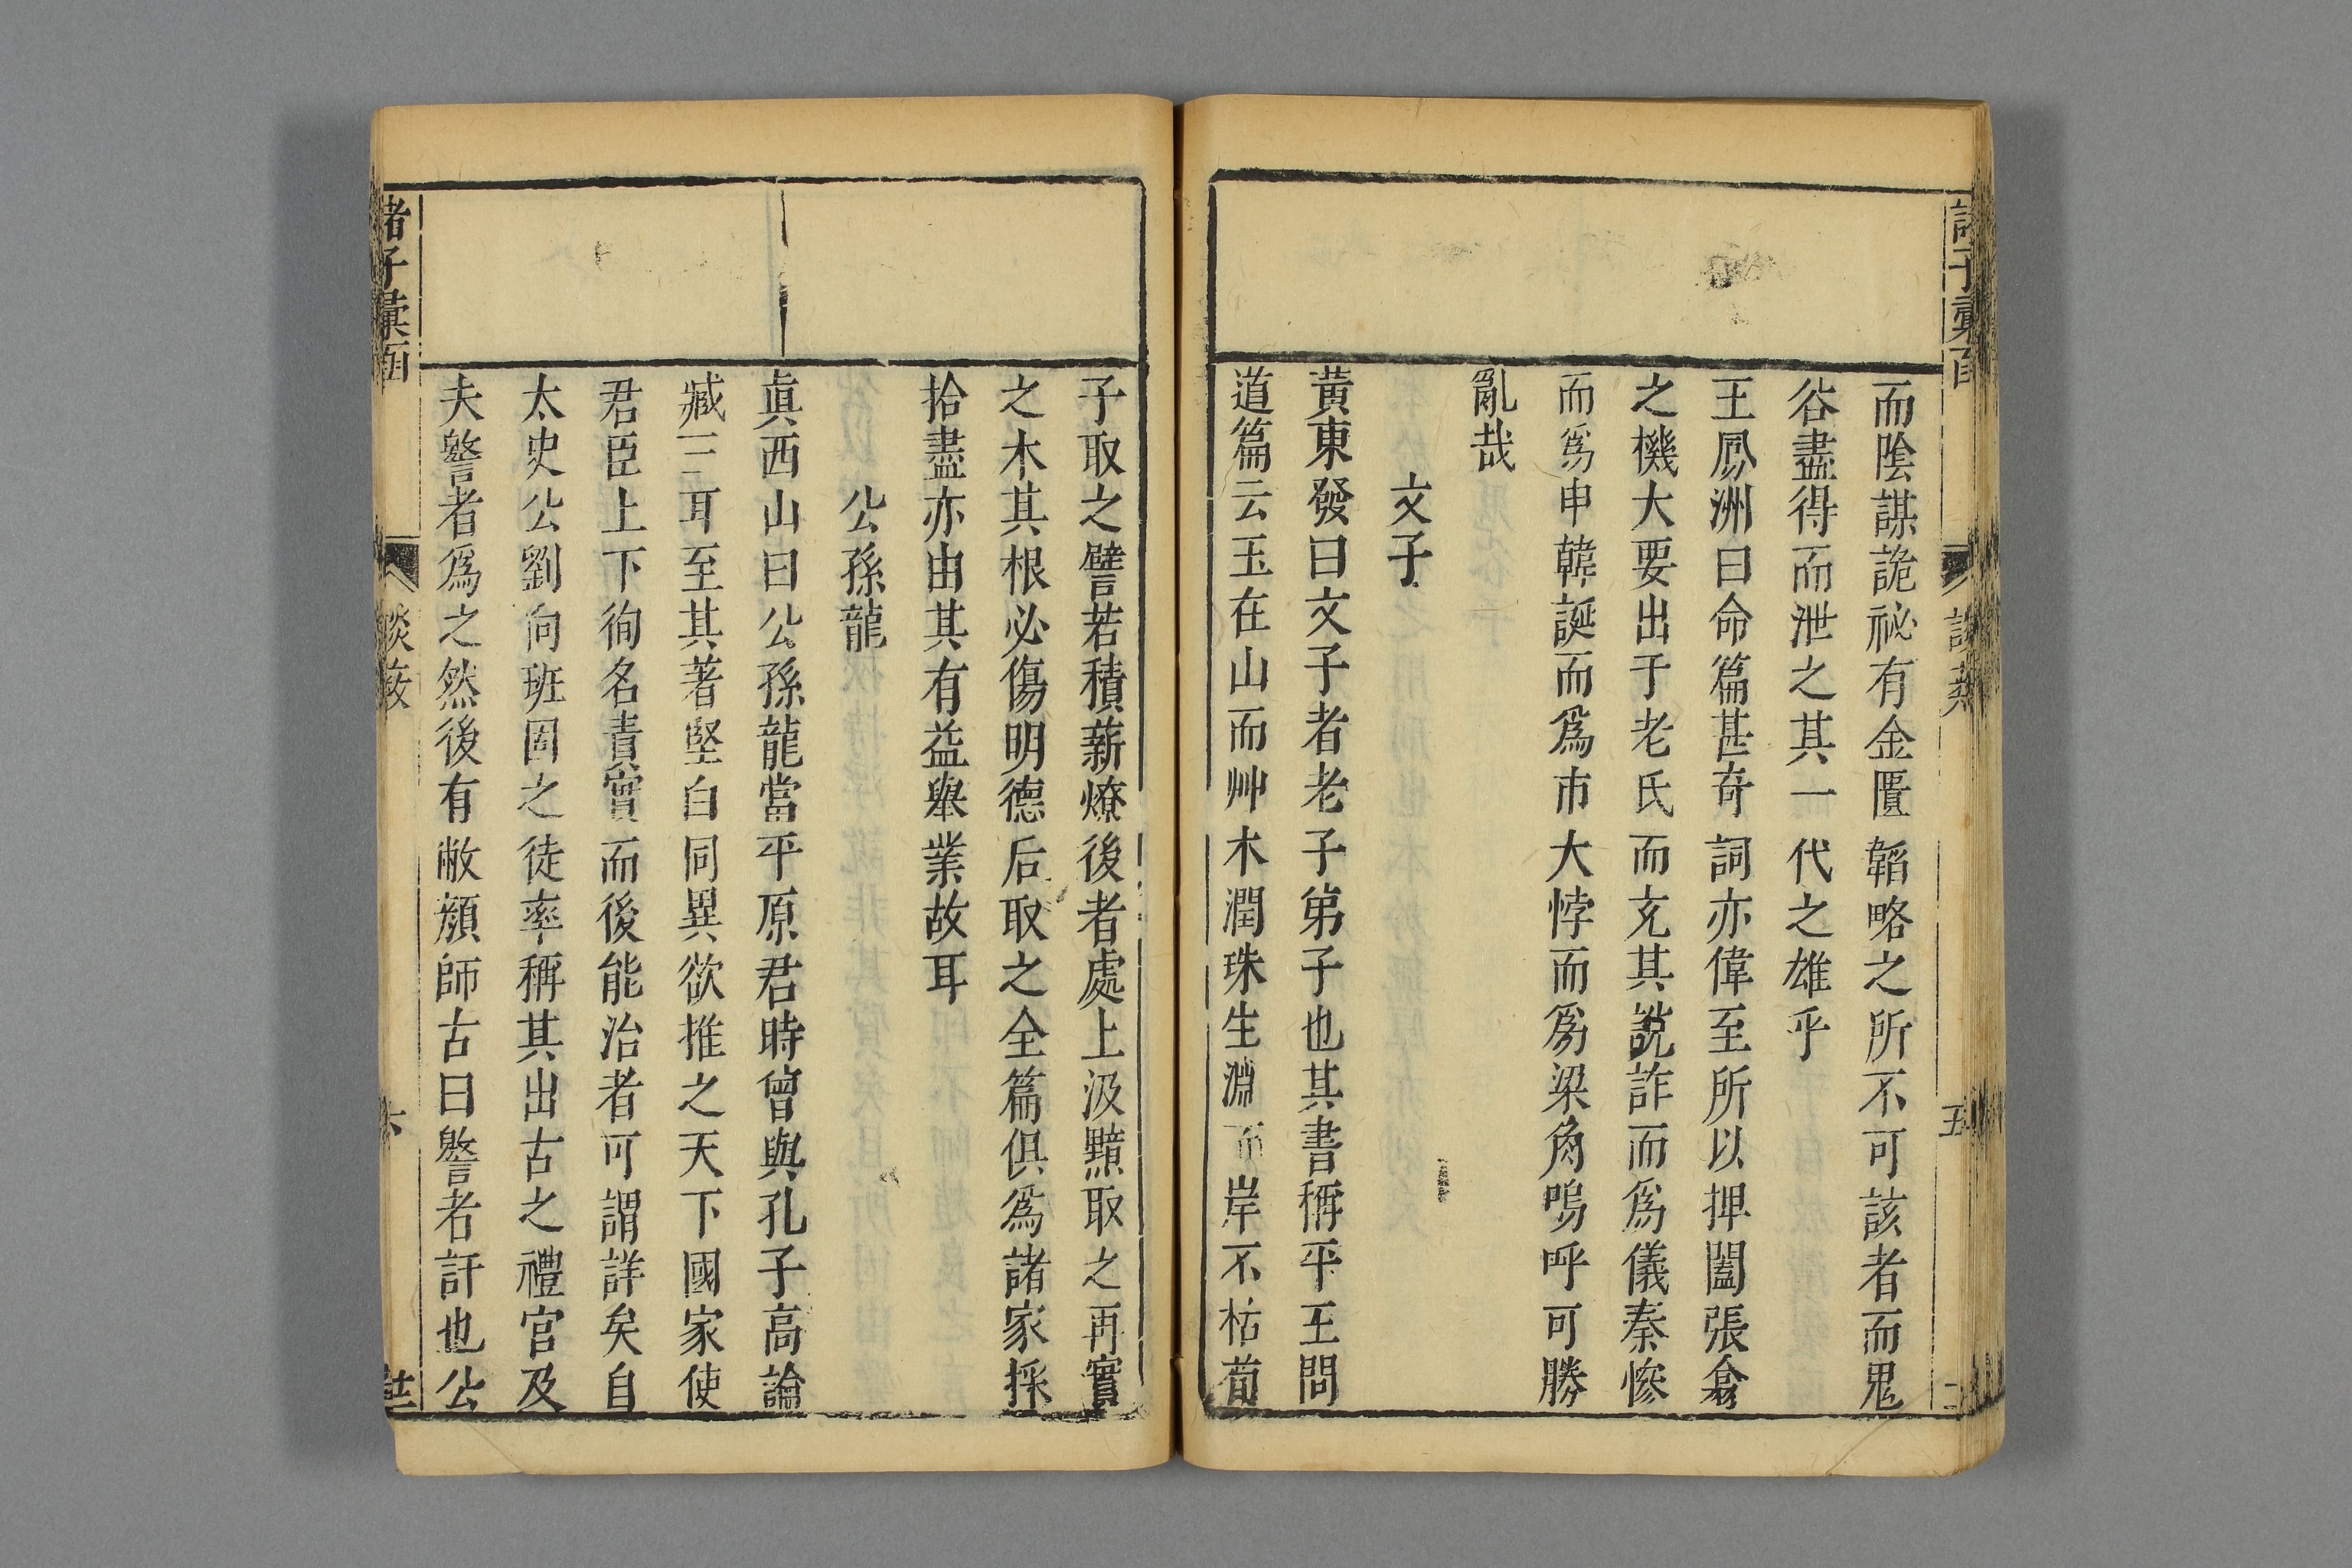 諸子彙函
談藪
五
而陰謀詭祕有金匱韜略之所不可該者而鬼
谷盡得而泄之其一代之雄乎
王鳳洲曰命篇甚奇詞亦偉至所以捭闔張翕
之機大要出于老氏而充其說詐而爲儀秦慘
而爲申韓誕而爲市大悖而爲梁角嗚呼可勝
亂哉
文子
黃東發曰文子者老子弟子也其書稱平王問
道篇云玉在山而艸木潤珠生淵而岸不枯荀
子取之譬若積薪燎後者處上汲黯取之再實
之木其根必傷明德后取之全篇俱爲諸家採
拾盡亦由其有益舉業故耳
公孫龍
眞西山曰公孫龍當平原君時曾與孔子高論
臧三耳至其著堅白同異欲推之天下國家使
君臣上下徇名責實而後能治者可謂詳矣自
太史公劉向班固之徒率稱其出古之禮官及
夫譥者爲之然後有敝顏師古曰譥者訐也公
諸子彙函
談薮
六